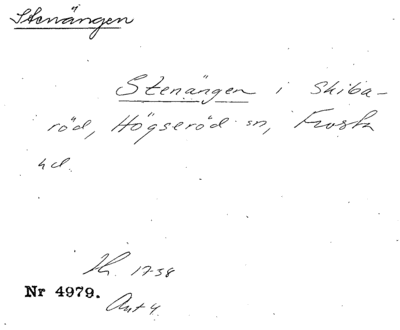 Stenängen
Stenängen i Skiba-
röd, Högseröd sn, Frosta
hd.
Th. 1738
Nr 4979.
Ant 4.